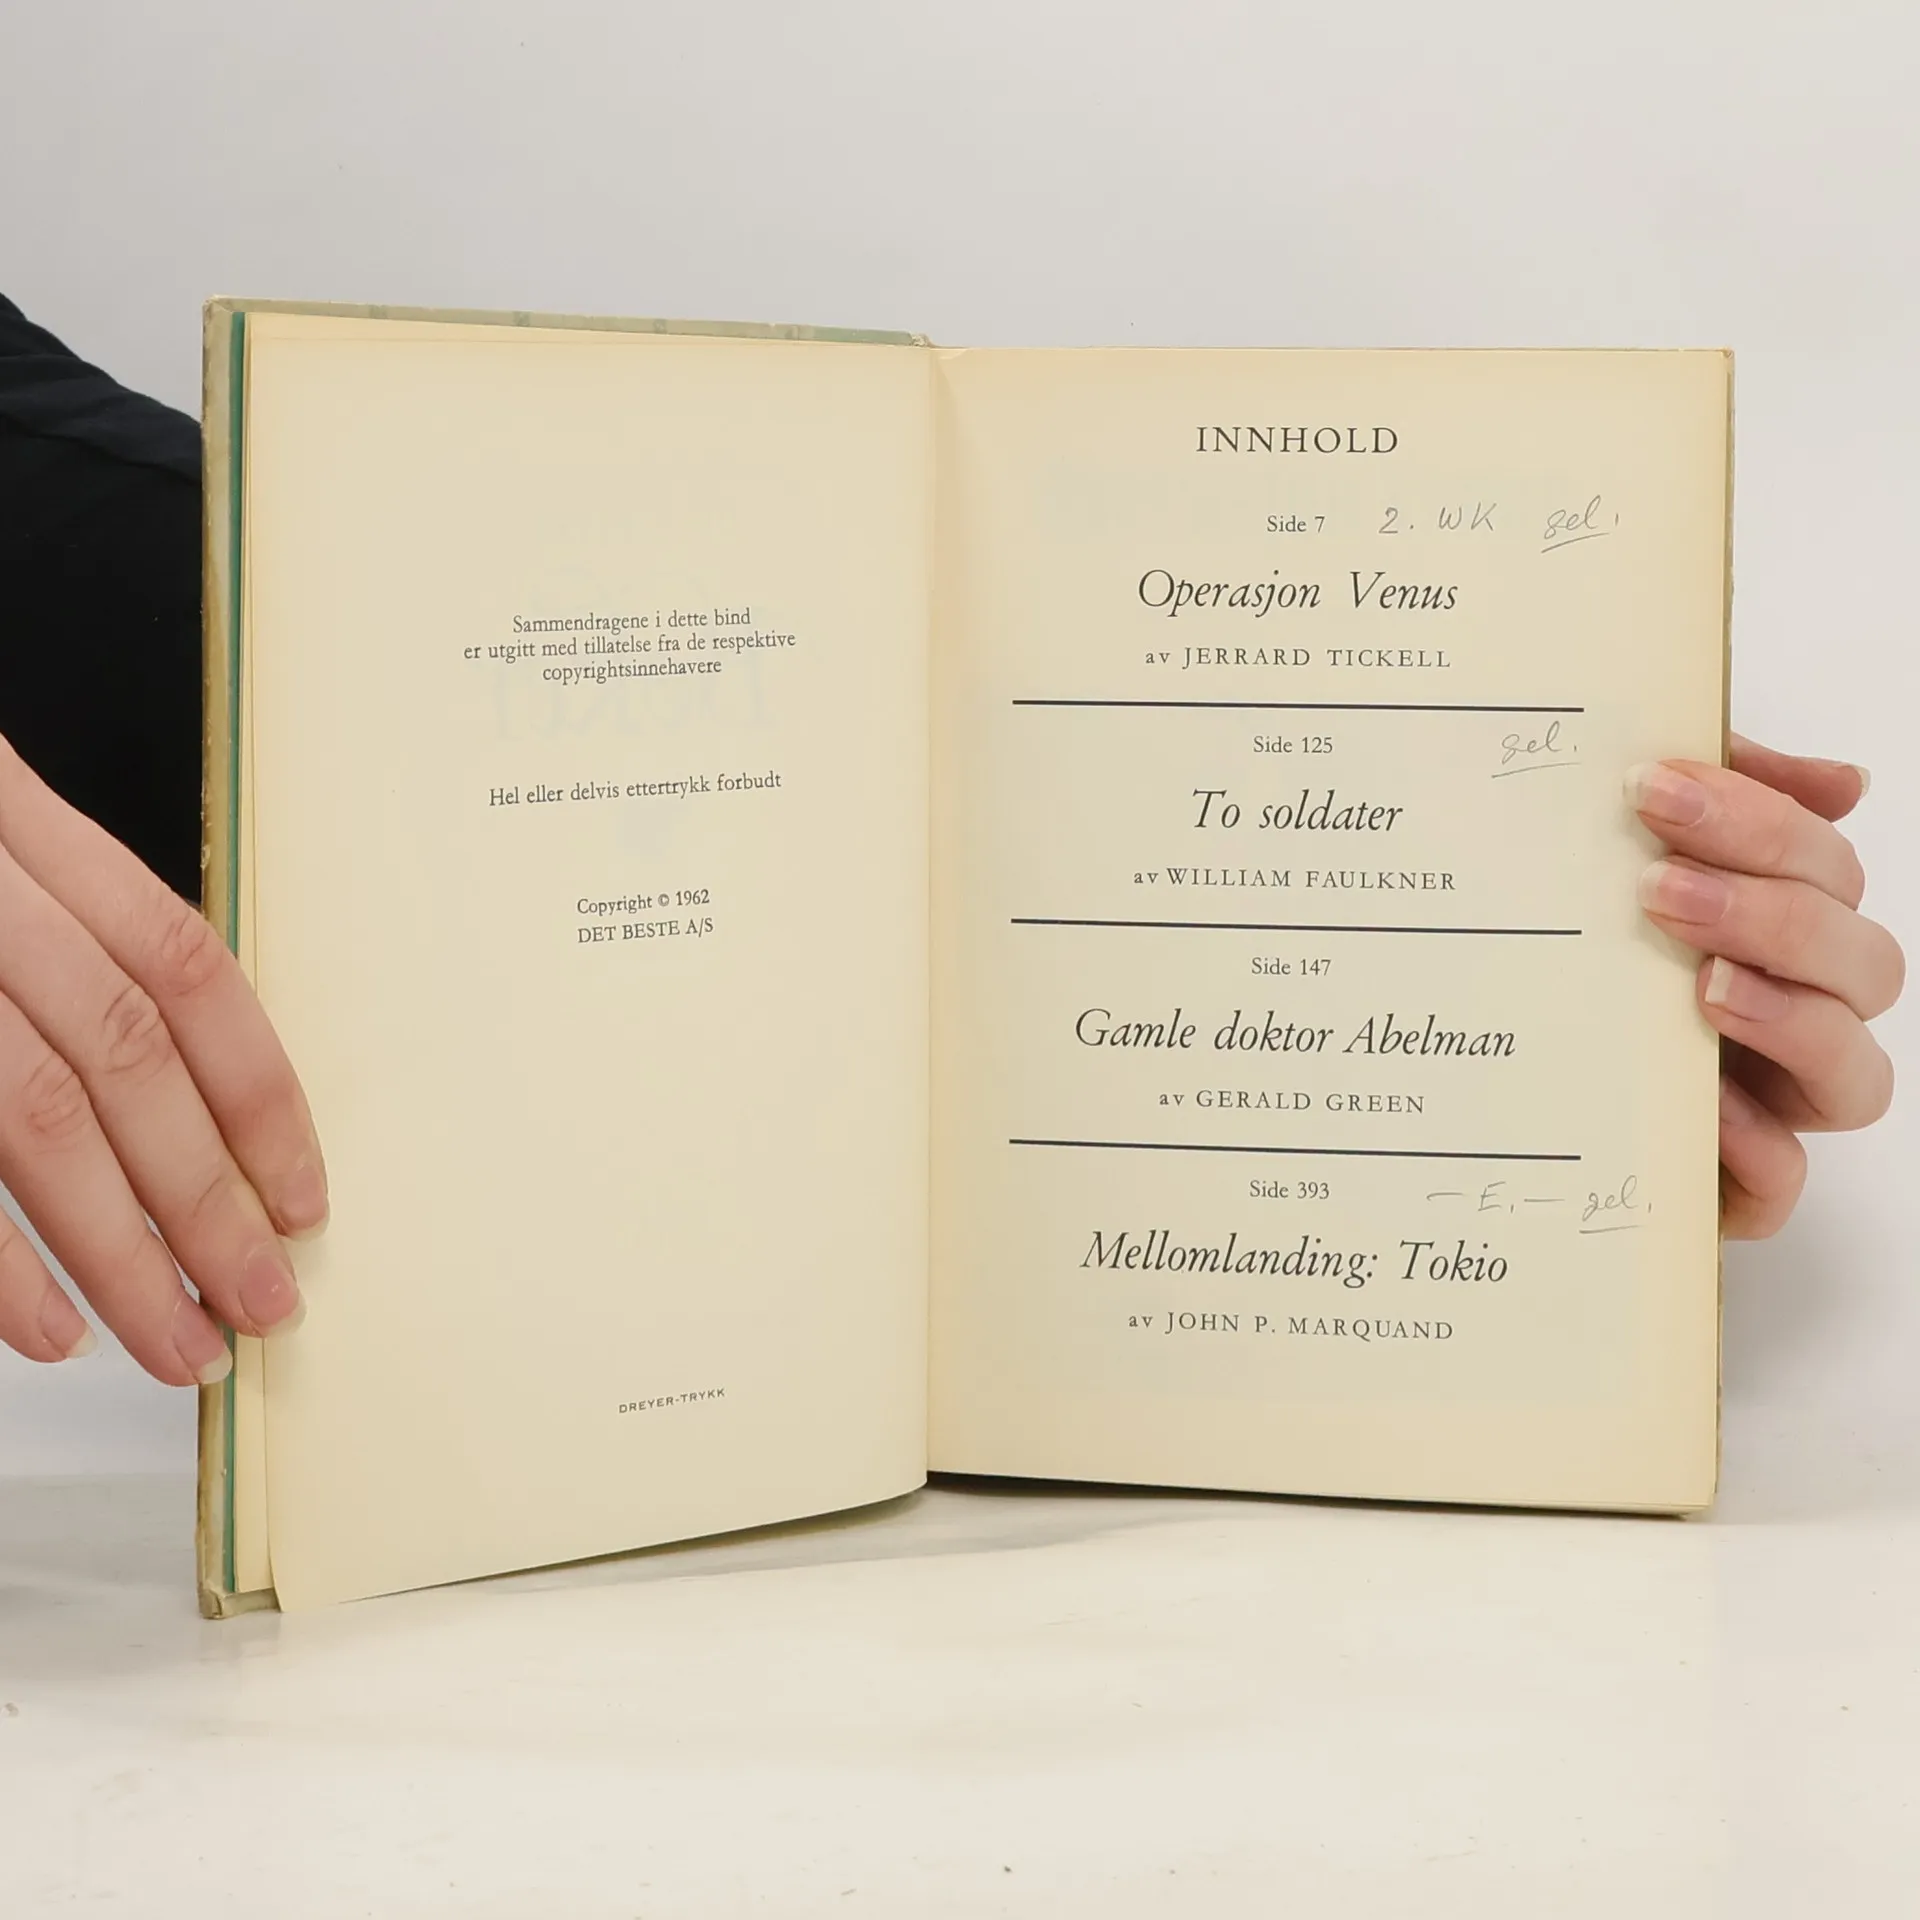 Sammendragene i dette bind
er utgitt med tillatelse fra de respektive
copyrightsinnehavere
Hel eller delvis ettertrykk forbudt
Copyright © 1962
DET BESTE A/S
DREYER-TRYKK
INNHOLD
Side 7 2. WK gel.
Operasjon Venus
av JERRARD TICKELL
Side 125 gel.
To soldater
av WILLIAM FAULKNER
Side 147
Gamle doktor Abelman
av GERALD GREEN
Side 393 — E. — gel.
Mellomlanding: Tokio
av JOHN P. MARQUAND